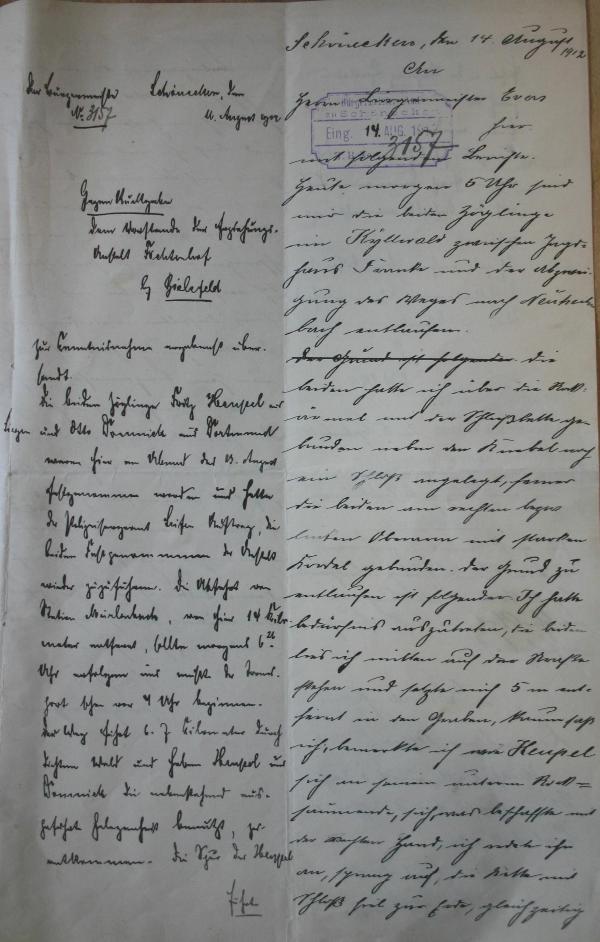 Der Bürgermeister
Nr. 3157
Schönecken, den
14. August 1912
Gegen Rückgabe
dem Vorstande der Erziehungs-
Anstalt
b/ Bielefeld
zur Kenntnisnahme ergebenst über-
sandt.
Die beiden Zöglinge Fritz Hempel aus
Siegen und Otto Dominick aus Dortmund
waren hier am Abend des 13. August
festgenommen worden und hatte
der Polizeisergeant Auftrag, die
beiden Festgenommenen der Anstalt
wieder zuzuführen. Die Abfahrt von
Station, von hier 14 Kilo-
meter entfernt, sollte morgens 6
Uhr erfolgen und mußte der Trans-
port schon vor 4 Uhr beginnen.
Der Weg führt 6-7 Kilometer durch
dichten Wald und haben Hempel und
Dominick die nebenstehend aus-
geführte Gelegenheit benutzt, zu
entkommen. Die Spur des Hempel
führt
Schönecken, den 14. August
1912
An
Herrn Bürgermeister Evers
hier
Eing. 14. AUG. 19
3157
mit folgendem Berichte.
Heute morgen 5 Uhr sind
mir die beiden Zöglinge
im Kyllwald zwischen Jagd-
haus Franke und der Abzwei-
gung des Weges nach Neuheil-
bach entlaufen.
Der Grund ist folgender die
beiden hatte ich über die Rock-
ärmel mit der Schließkette ge-
bunden neben den Knebel noch
ein Schloß angelegt, ferner
die beiden am rechten bezw
linken Oberarm mit starken
Kordel gebunden. Der Grund zu
entlaufen ist folgender Ich hatte
bedürfnis auszutreten, die beiden
lies ich mitten auf der Straße
stehen und setzte mich 5 m ent-
fernt in den Graben, kaum saß
ich, bemerkte ich wie Hempel
sich an seinem unterm Rock-
saumende, sich was beschaffte mit
der rechten Hand, ich redete ihn
an, sprang auf, die Kette und
Schloß fiel zur Erde, gleichzeitig